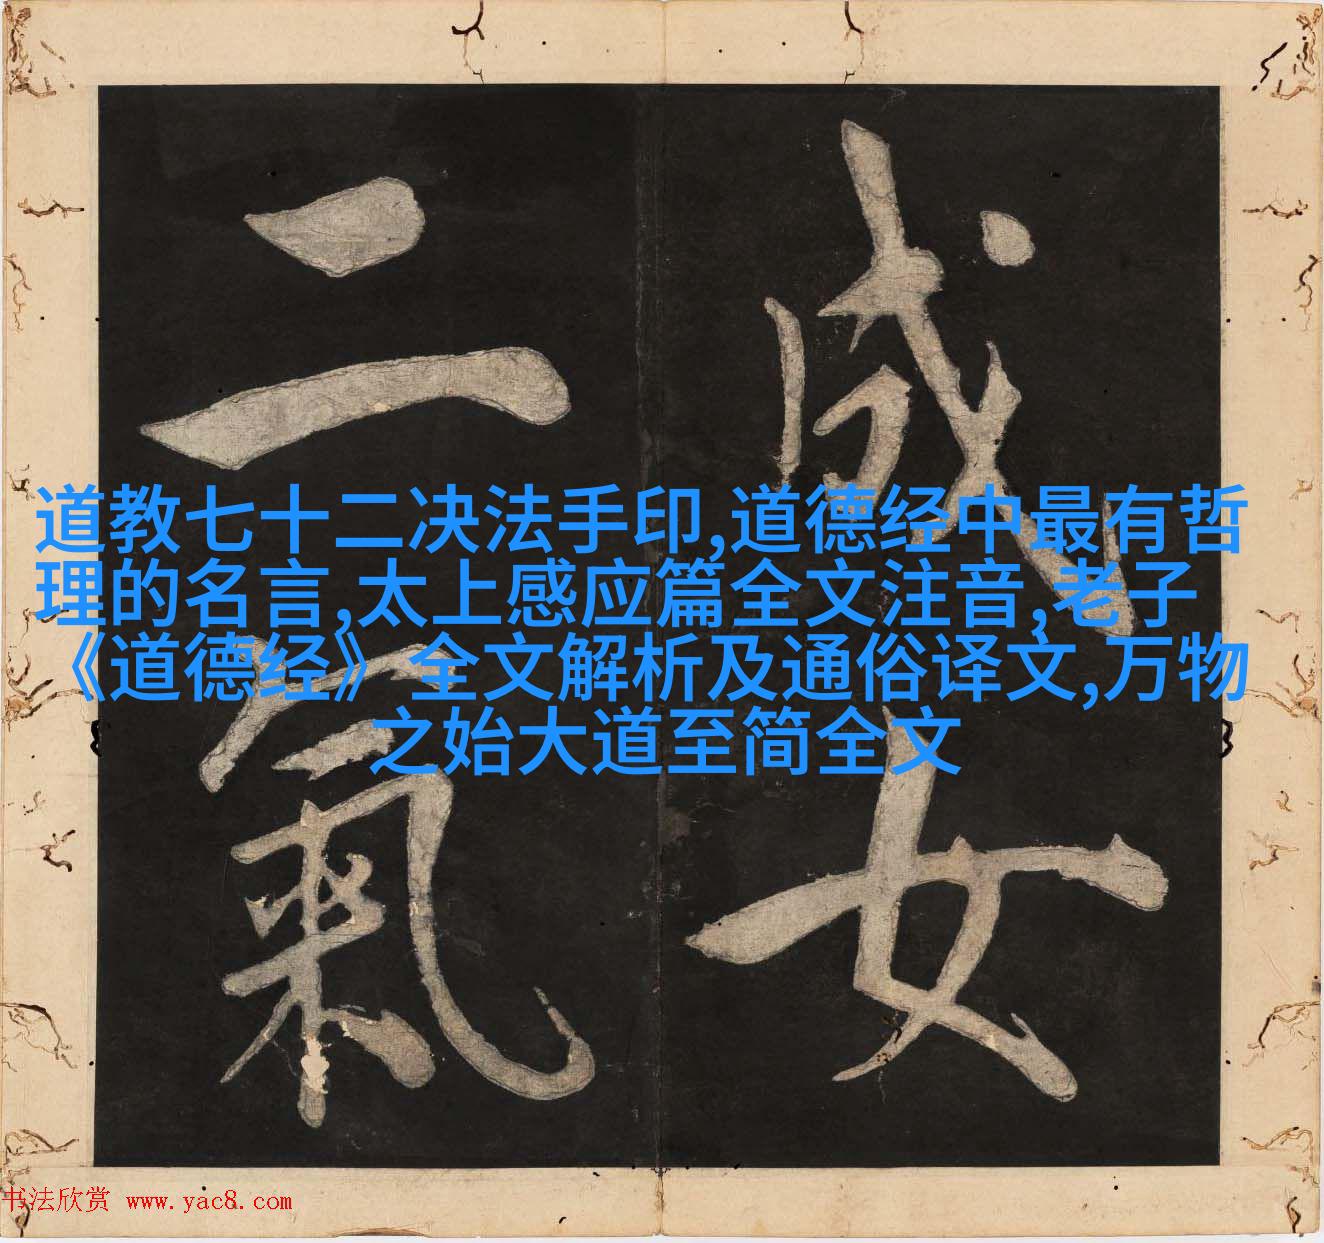 成女
二氣
道教七十二决法手印,道德经中最有哲
理的名言,太上感应篇全文注音,老子
《道德经》全文解析及通俗译文,万物
之始大道至简全文
书法欣赏 www.yac8.com